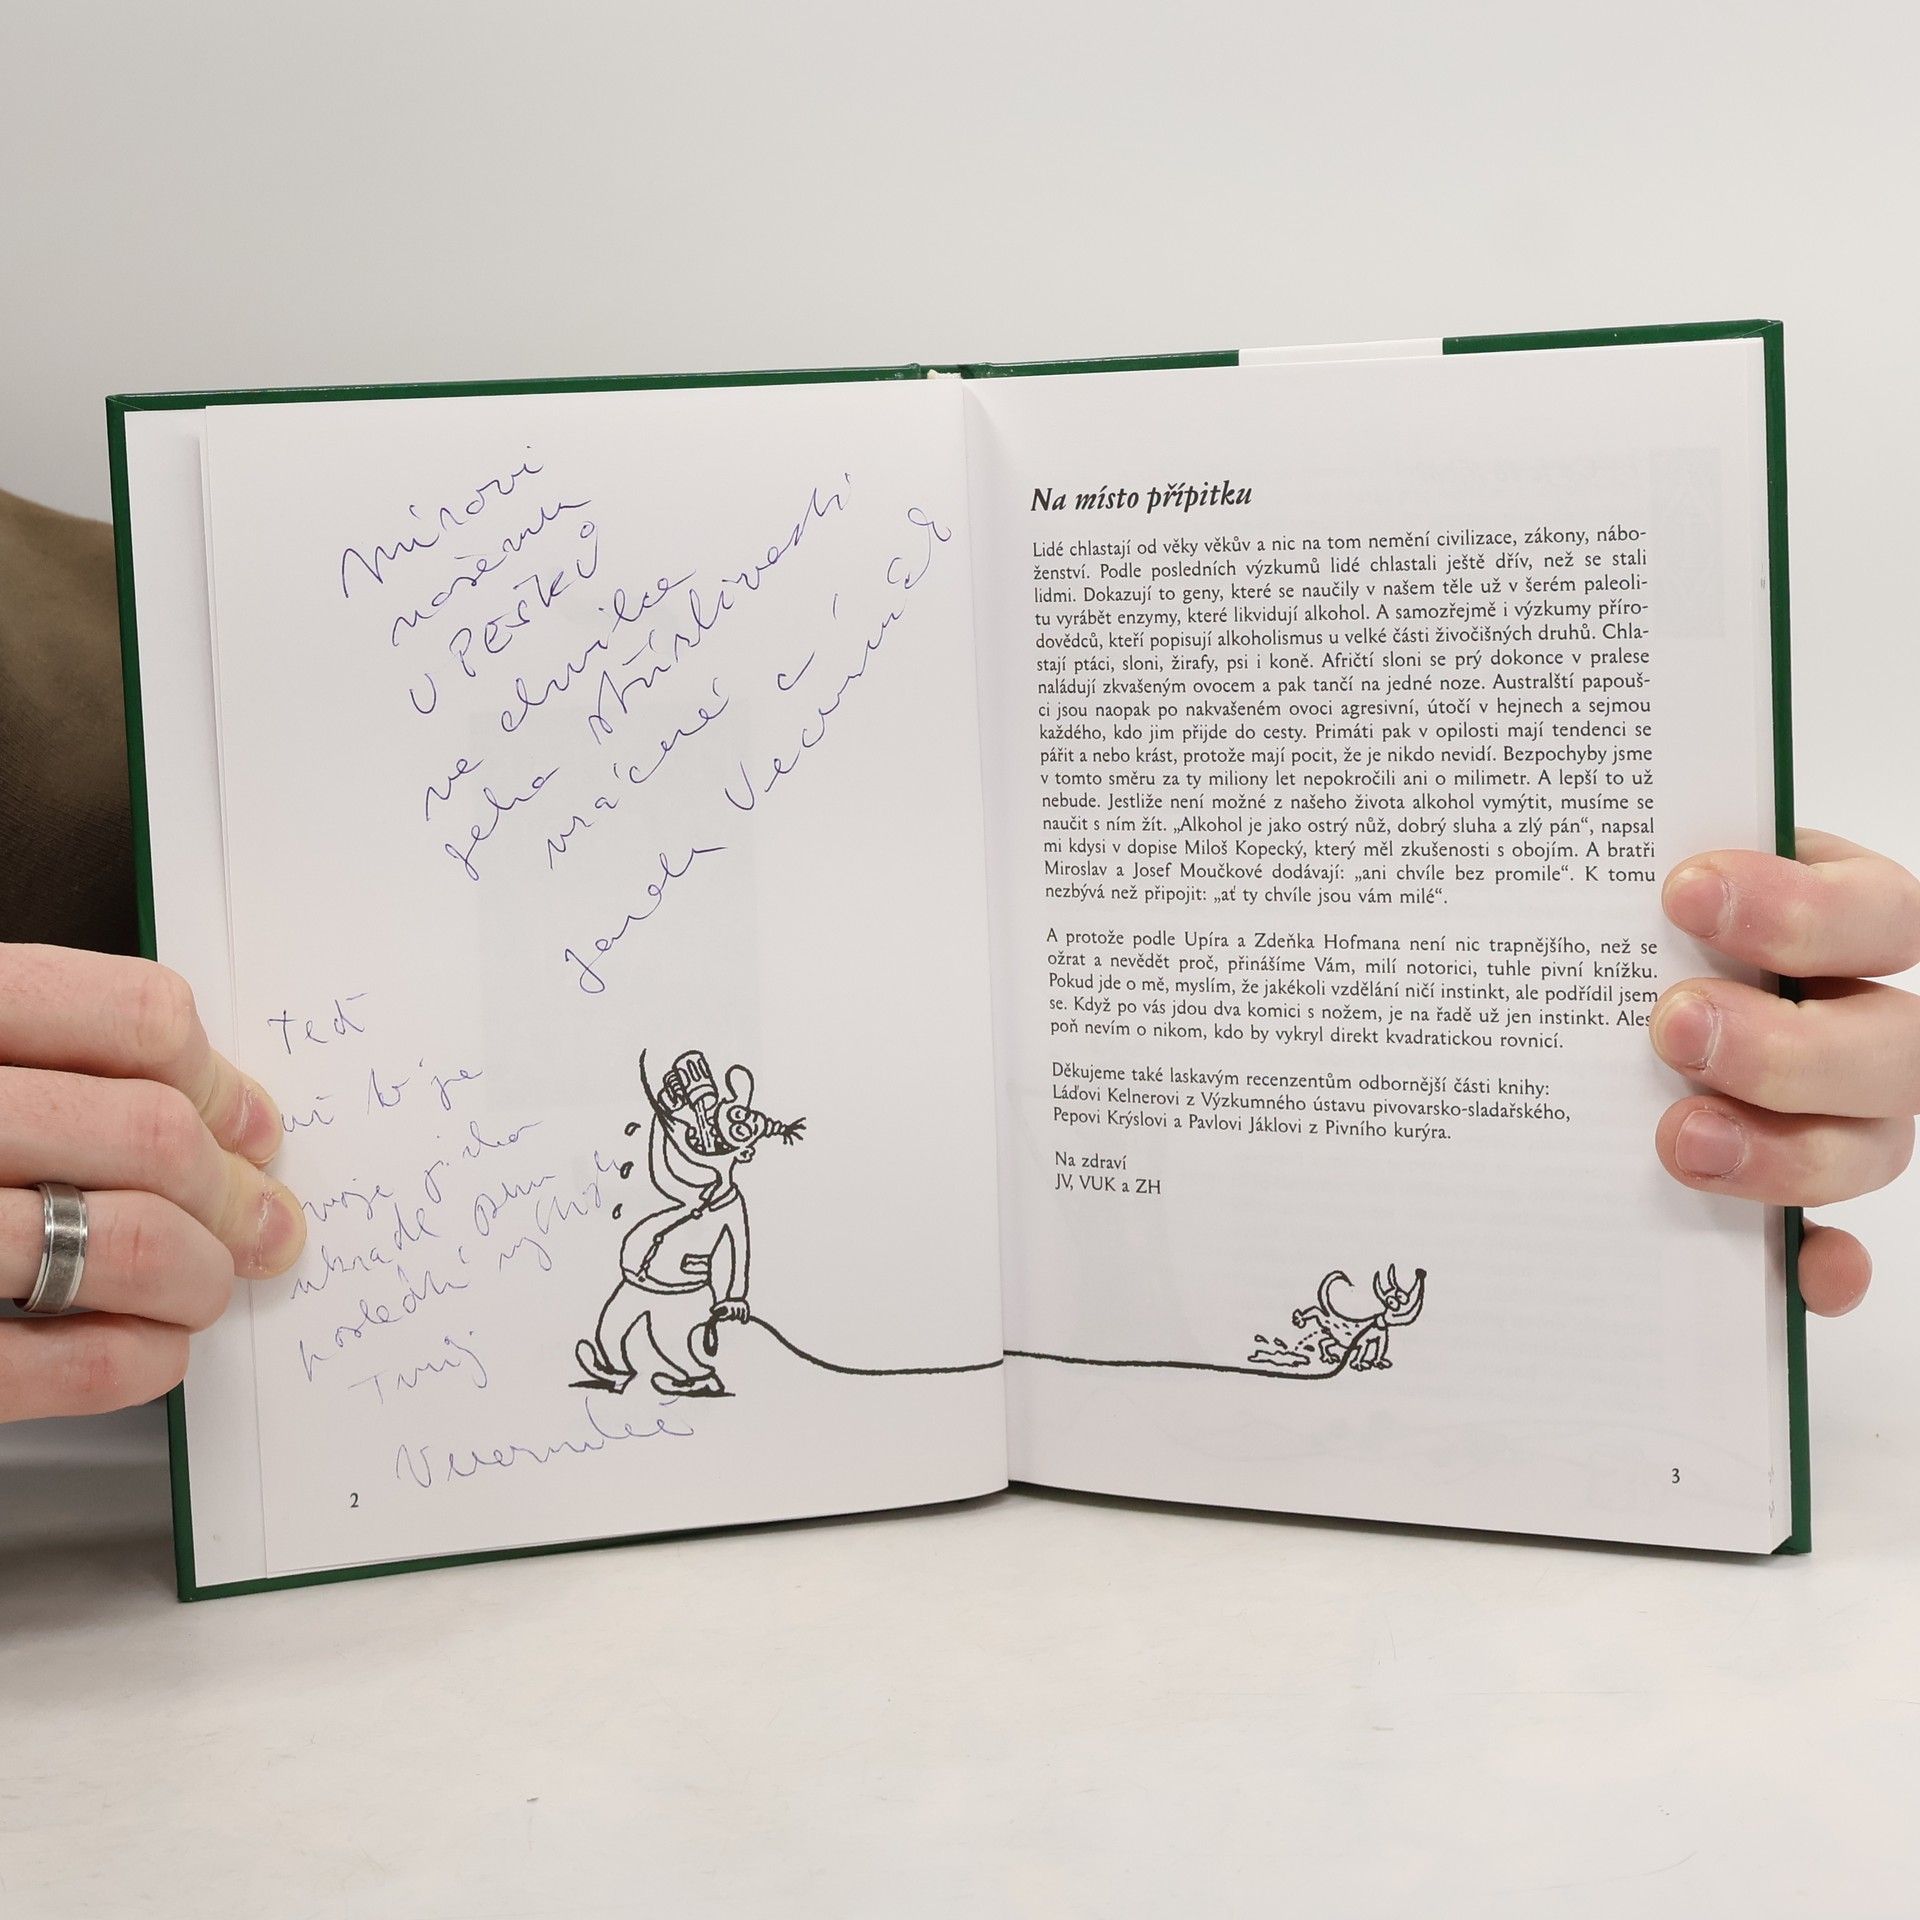 Mírovi
našemu
U PEŠKŮ
ve chvilce
jeho střízlivosti
vrácené
Teď
mi to je
poslední
Tvůj
2
Na místo přípitku
Lidé chlastají od věky věkův a nic na tom nemění civilizace, zákony, nábo-
ženství. Podle posledních výzkumů lidé chlastali ještě dřív, než se stali
lidmi. Dokazují to geny, které se naučily v našem těle už v šerém paleoli-
tu vyrábět enzymy, které likvidují alkohol. A samozřejmě i výzkumy příro-
dovědců, kteří popisují alkoholismus u velké části živočišných druhů. Chla-
stají ptáci, sloni, žirafy, psi i koně. Afričtí sloni se prý dokonce v pralese
naládují zkvašeným ovocem a pak tančí na jedné noze. Australští papouš-
ci jsou naopak po nakvašeném ovoci agresivní, útočí v hejnech a sejmou
každého, kdo jim přijde do cesty. Primáti pak v opilosti mají tendenci se
pářit a nebo krást, protože mají pocit, že je nikdo nevidí. Bezpochyby jsme
v tomto směru za ty miliony let nepokročili ani o milimetr. A lepší to už
nebude. Jestliže není možné z našeho života alkohol vymýtit, musíme se
naučit s ním žít. „Alkohol je jako ostrý nůž, dobrý sluha a zlý pán“, napsal
mi kdysi v dopise Miloš Kopecký, který měl zkušenosti s obojím. A bratři
Miroslav a Josef Moučkové dodávají: „ani chvíle bez promile“. K tomu
nezbývá než připojit: „ať ty chvíle jsou vám milé“.
A protože podle Upíra a Zdeňka Hofmana není nic trapnějšího, než se
ožrat a nevědět proč, přinášíme Vám, milí notorici, tuhle pivní knížku.
Pokud jde o mě, myslím, že jakékoli vzdělání ničí instinkt, ale podřídil jsem
se. Když po vás jdou dva komici s nožem, je na řadě už jen instinkt. Ales
poň nevím o nikom, kdo by vykryl direkt kvadratickou rovnicí.
Děkujeme také laskavým recenzentům odbornější části knihy:
Láďovi Kelnerovi z Výzkumného ústavu pivovarsko-sladařského,
Pepovi Krýslovi a Pavlovi Jáklovi z Pivního kurýra.
Na zdraví
JV, VUK a ZH
3